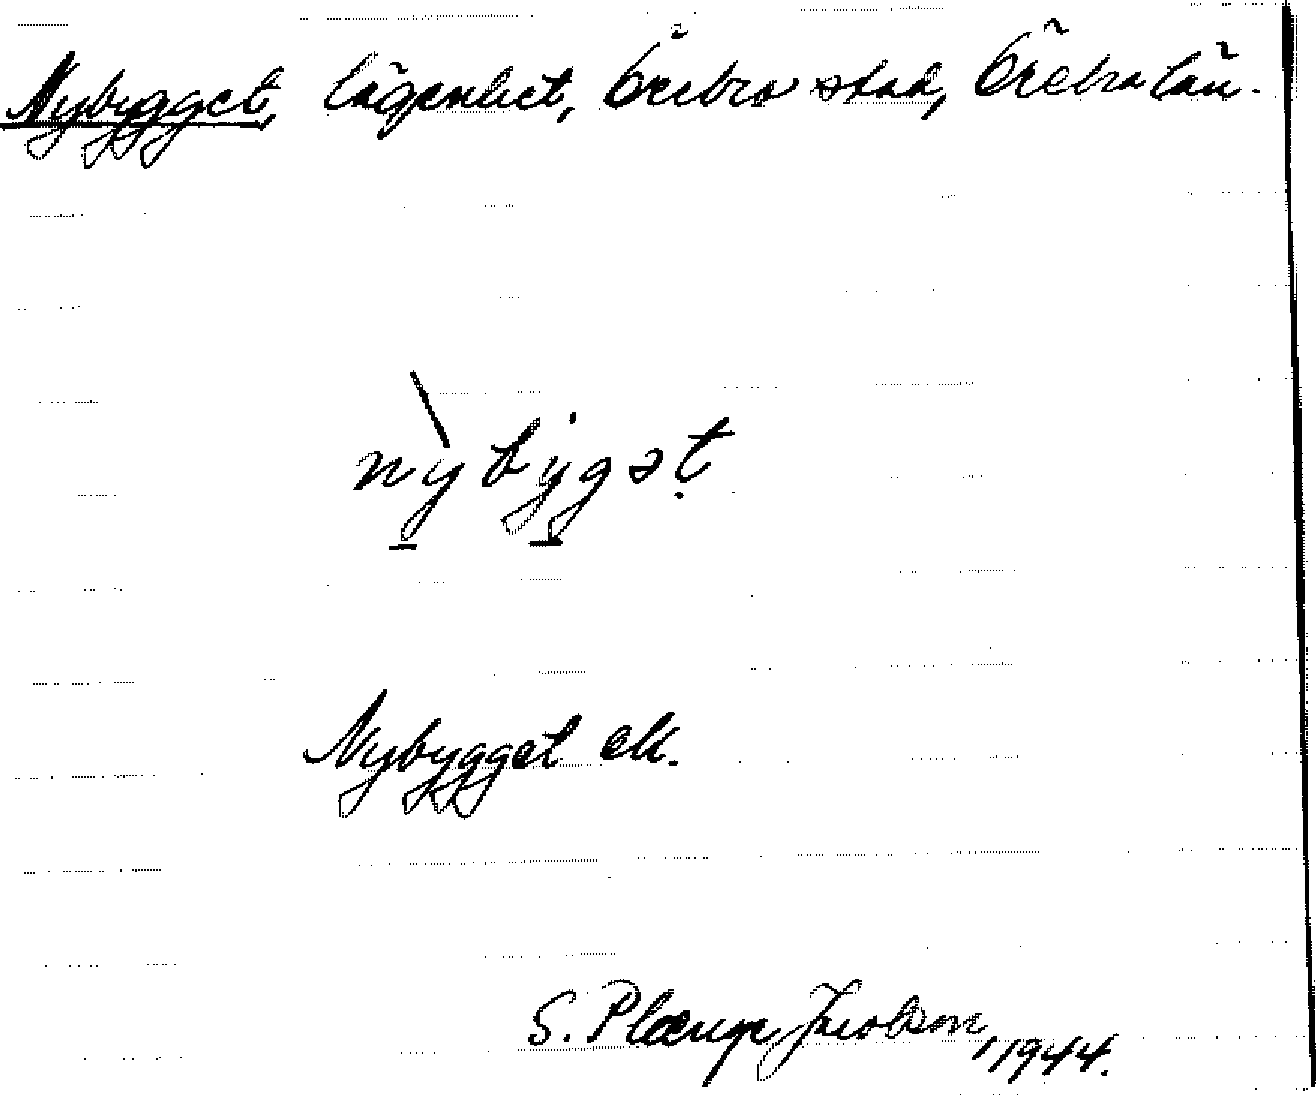 Nybygget, lägenhet, Örebro stad, Örebro län.
nỳbygət
Nybygget ek.
S. Plænge Jacobson, 1944.